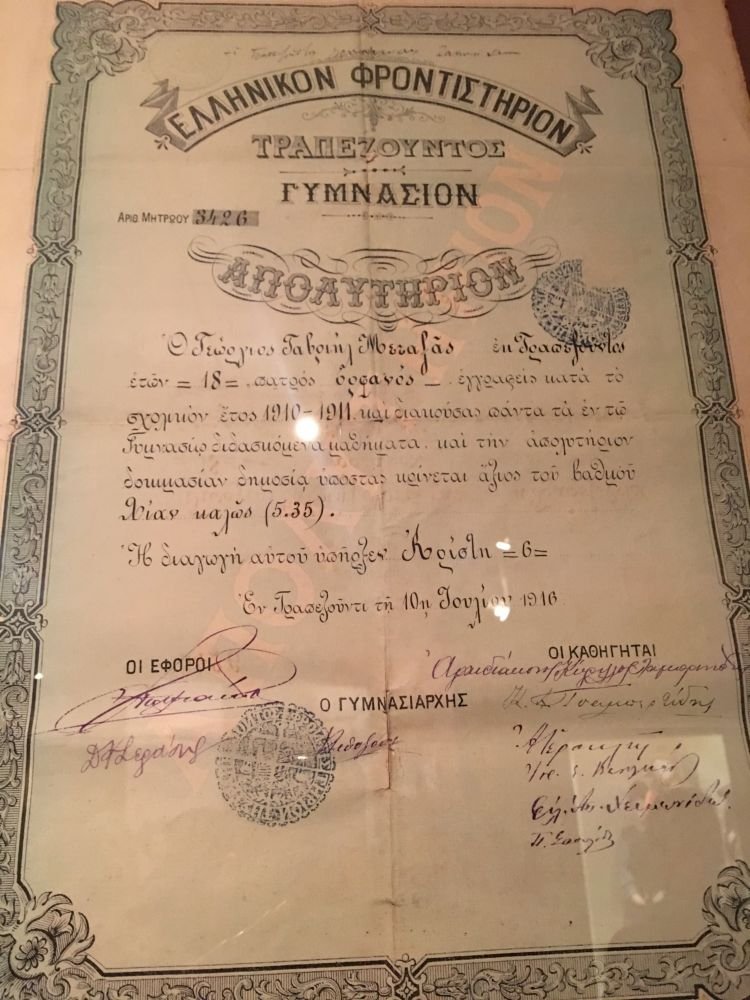 ΕΛΛΗΝΙΚΟΝ ΦΡΟΝΤΙΣΤΗΡΙΟΝ
ΤΡΑΠΕΖΟΥΝΤΟΣ
ΓΥΜΝΑΣΙΟΝ
ΑΡΙΘ ΜΗΤΡΩΟΥ 3426
ΑΠΟΛΥΤΗΡΙΟΝ
Ὁ Γεώργιος Γαβριήλ Μεταξᾶς ἐκ Τραπεζοῦντος
ἐτῶν = 18 = πατρός ὀρφανός – ἐγγραφείς κατά τό
σχολικόν ἔτος 1910-1911 καί διακούσας πάντα τά ἐν τῷ
Γυμνασίῳ διδασκόμενα μαθήματα καί τήν ἀπολυτήριον
δοκιμασίαν δημοσίᾳ ὑποστάς κρίνεται ἄξιος τοῦ βαθμοῦ
Λίαν καλῶς (5.35).
Ἡ διαγωγή αὐτοῦ ὑπῆρξεν Ἀρίστη =6=
Ἐν Τραπεζοῦντι τῇ 10ῃ Ἰουλίου 1916
ΟΙ ΕΦΟΡΟΙ
ΟΙ ΚΑΘΗΓΗΤΑΙ
Ο ΓΥΜΝΑΣΙΑΡΧΗΣ